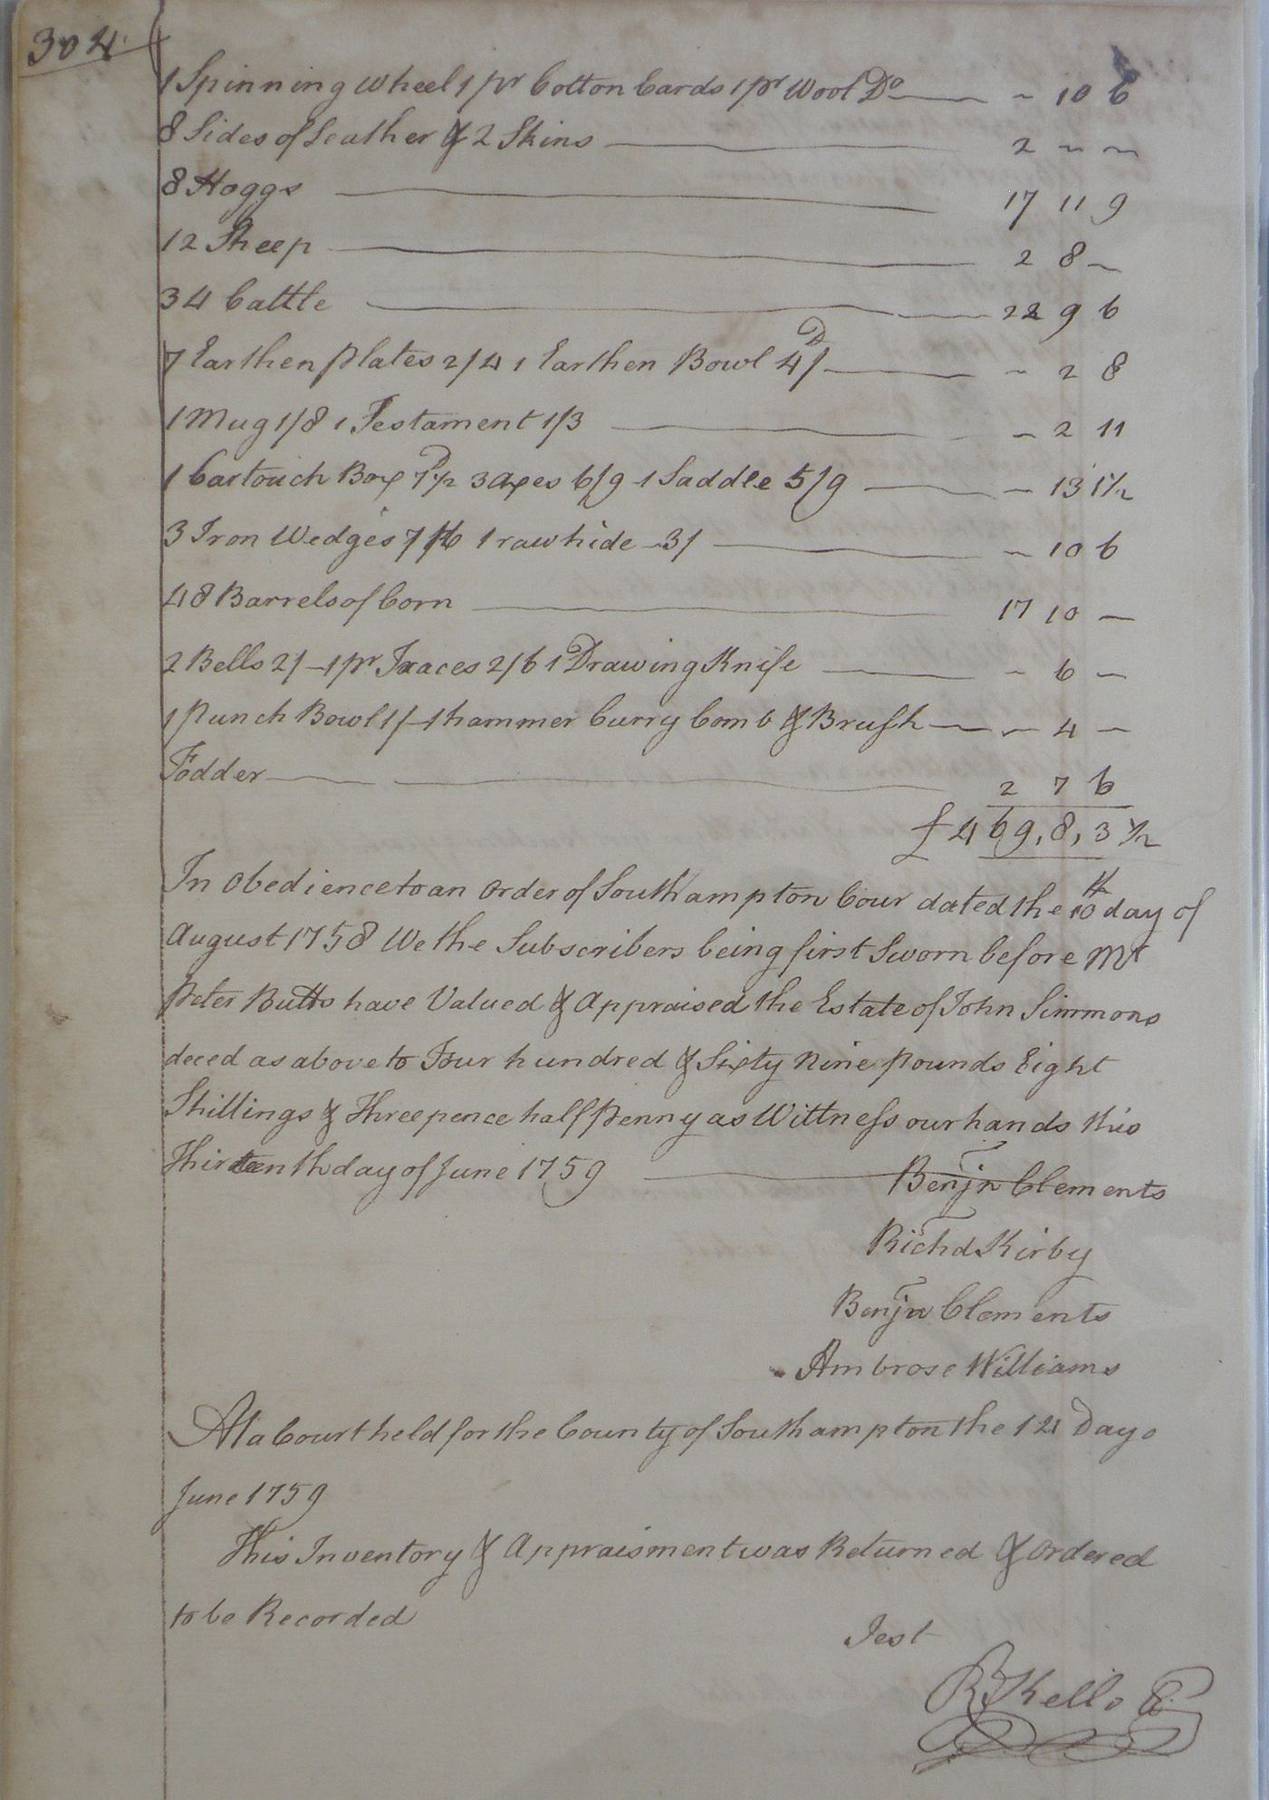 304
1 Spinning Wheel 1 pr Cotton Cards 1 pr Wool Do — ~ 10 6
8 Sides of Leather & 2 Skins — 2 ~ ~
8 Hoggs — 17 11 9
12 Sheep — 2 8 ~
34 Cattle — 22 9 6
7 Earthen plates 2/4 1 Earthen Bowl 4D/ — ~ 2 8
1 Mug 1/8 1 Testament 1/3 — ~ 2 11
1 Cartouch Box 7D½ 3 axes 6/9 1 Saddle 5/9 — ~ 13 1½
3 Iron Wedges 7/6 1 rawhide 3/ — ~ 10 6
48 Barrels of Corn — 17 10 —
2 Bells 2/– 1 pr Traces 2/6 1 Drawing Knife — ~ 6 ~
1 Punch Bowl 1/– 1 hammer Curry Comb & Brush — ~ 4 ~
Fodder — 2 7 6
£469,8,3½
In Obedience to an Order of Southampton Cour dated the 10th day of
August 1758 We the Subscribers being first Sworn before Mr
Peter Butts have Valued & Appraised the Estate of John Simmons
deced as above to Four hundred & Sixty Nine pounds Eight
Shillings & Threepence half Penny as Wittness our hands this
Thirteenth day of June 1759 — Benjn Clements
Richd Kirby
Benjn Clements
Ambrose Williams
At a Court held for the County of Southampton the 14 Day o
June 1759
This Inventory & Appraisment was Returned & Ordered
to be Recorded
Test
R Kello